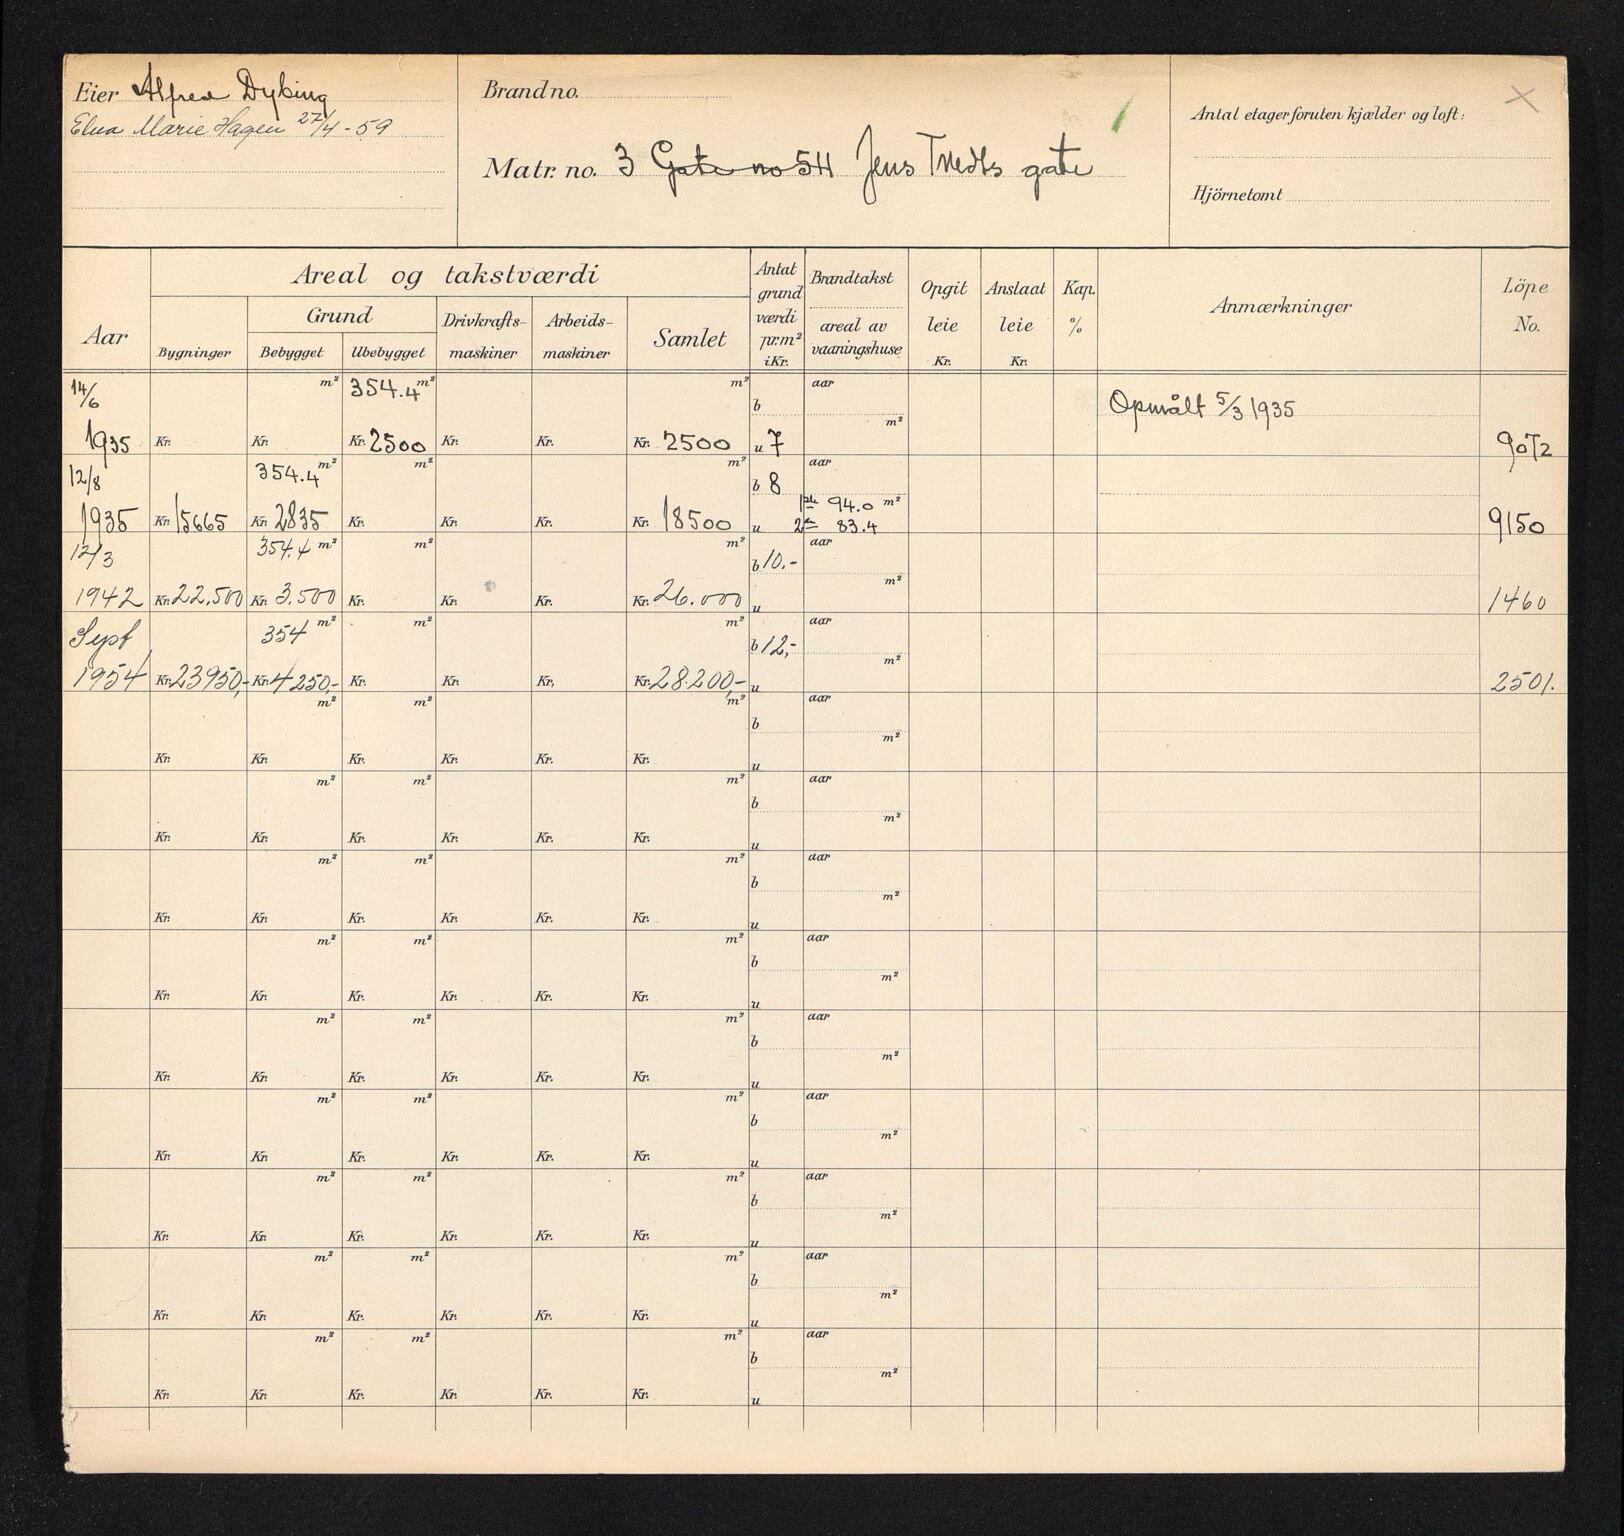 Eier Alfred Dybing
Elna Marie Hagen 27/4-59
Brand no.
Matr. no. 3 Gate no 54 Jens Tvedts gate
Antal etager foruten kjælder og loft:
Hjörnetomt
Aar
Areal og takstværdi
Bygninger
Grund
Bebygget
Ubebygget
Drivkrafts-
maskiner
Arbeids-
maskiner
Samlet
Antat
grund
værdi
pr.m²
i Kr.
Brandtakst
areal av
vaaningshuse
Opgit
leie
Kr.
Anslaat
leie
Kr.
Kap.
%
Anmærkninger
Löpe
No.
14/6 m² 354.4 m² m² b aar m² Opmålt 5/3 1935
1935 Kr. Kr. Kr. 2500 Kr. Kr. Kr. 2500 u 7 9072
12/8 354.4 m² m² m² b 8 aar 94.0 m²
1935 Kr. 15665 Kr. 2835 Kr. Kr. Kr. Kr. 18500 u 83.4 9150
12/3 354.4 m² m² m² b 10.- aar m²
1942 Kr. 22.500 Kr. 3.500 Kr. Kr. Kr. Kr. 26.000 u 1460
Sept 354 m² m² m² b 12,- aar m²
1954 Kr. 23950,- Kr. 4250,- Kr. Kr. Kr. Kr. 28.200,- u 2501.
m² m² m² b aar m²
Kr. Kr. Kr. Kr. Kr. Kr. u
m² m² m² b aar m²
Kr. Kr. Kr. Kr. Kr. Kr. u
m² m² m² b aar m²
Kr. Kr. Kr. Kr. Kr. Kr. u
m² m² m² b aar m²
Kr. Kr. Kr. Kr. Kr. Kr. u
m² m² m² b aar m²
Kr. Kr. Kr. Kr. Kr. Kr. u
m² m² m² b aar m²
Kr. Kr. Kr. Kr. Kr. Kr. u
m² m² m² b aar m²
Kr. Kr. Kr. Kr. Kr. Kr. u
m² m² m² b aar m²
Kr. Kr. Kr. Kr. Kr. Kr. u
m² m² m² b aar m²
Kr. Kr. Kr. Kr. Kr. Kr. u